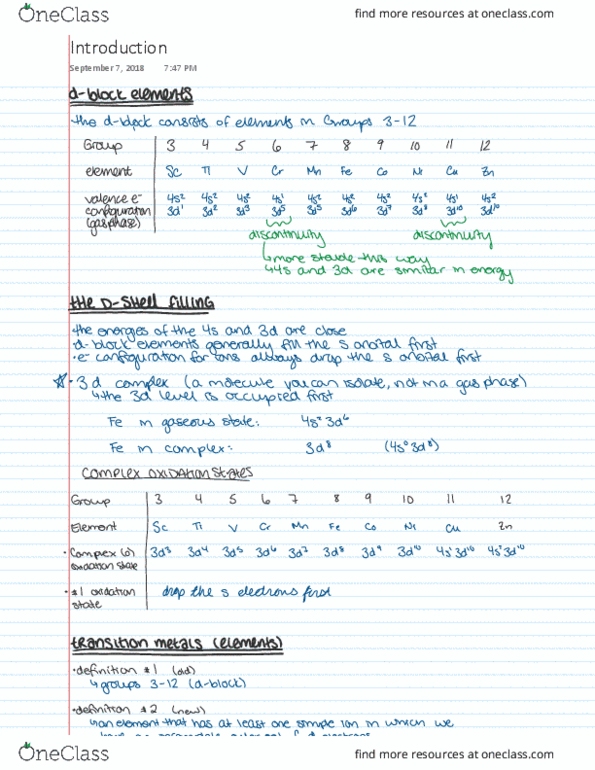 OneClass
find more resources at oneclass.com
Introduction
September 7, 2018 7:47 PM
d-block elements
the d-block consists of elements in Groups 3-12
Group 3 4 5 6 7 8 9 10 11 12
element Sc Ti V Cr Mn Fe Co Ni Cu Zn
valence e⁻ 4s² 4s² 4s² 4s¹ 4s² 4s² 4s² 4s² 4s¹ 4s²
configuration 3d¹ 3d² 3d³ 3d⁵ 3d⁵ 3d⁶ 3d⁷ 3d⁸ 3d¹⁰ 3d¹⁰
(gas phase)
discontinuity discontinuity
↳more stable this way
↳4s and 3d are similar in energy
the D-Shell filling
·the energies of the 4s and 3d are close
·d-block elements generally fill the s orbital first
·e⁻ configuration for ions always drop the s orbital first
☆·3d complex (a molecule you can isolate, not in a gas phase)
↳the 3d level is occupied first
Fe in gaseous state: 4s² 3d⁶
Fe in complex: 3d⁸ (4s⁰3d⁸)
COMPLEX OXIDATION STATES
Group 3 4 5 6 7 8 9 10 11 12
Element Sc Ti V Cr Mn Fe Co Ni Cu Zn
·Complex (0) 3d³ 3d⁴ 3d⁵ 3d⁶ 3d⁷ 3d⁸ 3d⁹ 3d¹⁰ 4s¹3d¹⁰ 4s²3d¹⁰
oxidation state
·+1 oxidation drop the s electrons first
state
transition metals (elements)
·definition #1 (old)
↳groups 3-12 (d-block)
·definition #2 (new)
↳an element that has at least one simple ion in which we
OneClass
find more resources at oneclass.com